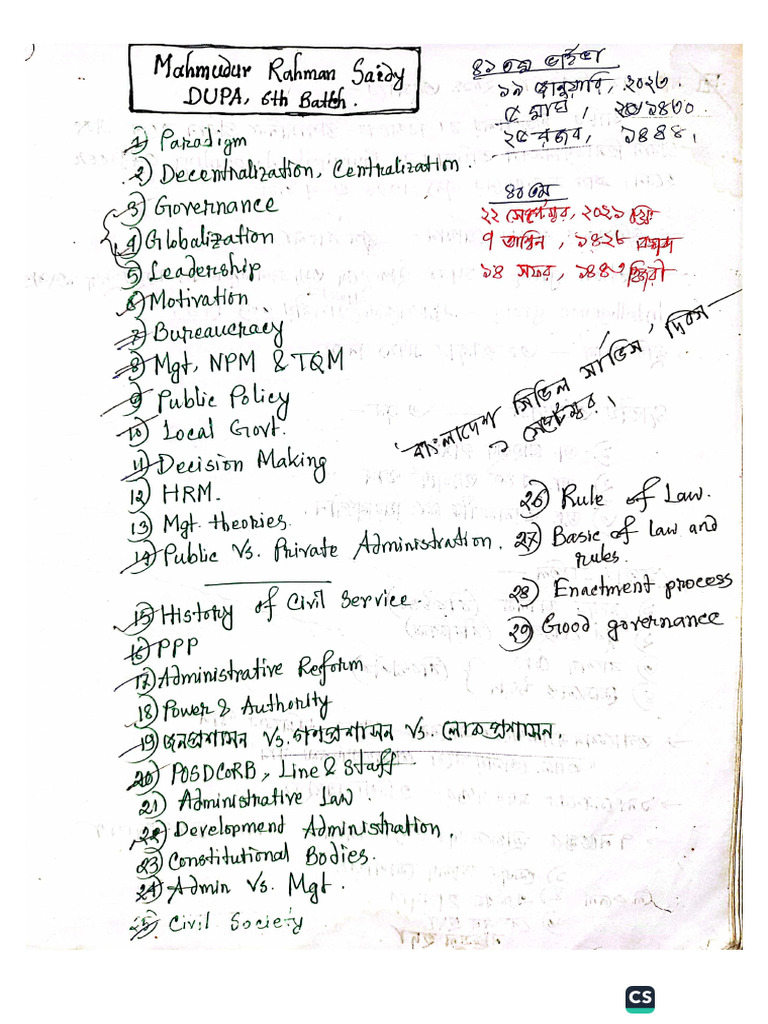 Mahmudur Rahman Saidy
DUPA, 6th Batch.
৪১ তম ভাইভা
১৯ জানুয়ারি, ২০২৩.
৫ মাঘ, ১৪৩০.
২৫ রজব, ১৪৪৪।
৪০তম
২২ সেপ্টেম্বর, ২০২১ খ্রিঃ
৭ আশ্বিন, ১৪২৮ বঙ্গাব্দ
১৪ সফর, ১৪৪৩ হিজরী
1) Paradigm
2) Decentralization, Centralization.
3) Governance
4) Globalization
5) Leadership
6) Motivation
7) Bureaucracy
8) Mgt, NPM & TQM
9) Public Policy
10) Local Govt.
11) Decision Making
12) HRM.
13) Mgt. theories.
14) Public Vs. Private Administration.
'বাংলাদেশ সিভিল সার্ভিস' দিবস –
১ সেপ্টেম্বর।
15) History of Civil Service.
16) PPP
17) Administrative Reform
18) Power & Authority
19) জনপ্রশাসন Vs. গণপ্রশাসন Vs. লোকপ্রশাসন.
20) POSDCORB, Line & Staff
21) Administrative Law
22) Development Administration.
23) Constitutional Bodies.
24) Admin Vs. Mgt.
25) Civil Society
26) Rule of Law.
27) Basic of law and
rules.
28) Enactment process
29) Good governance
CS